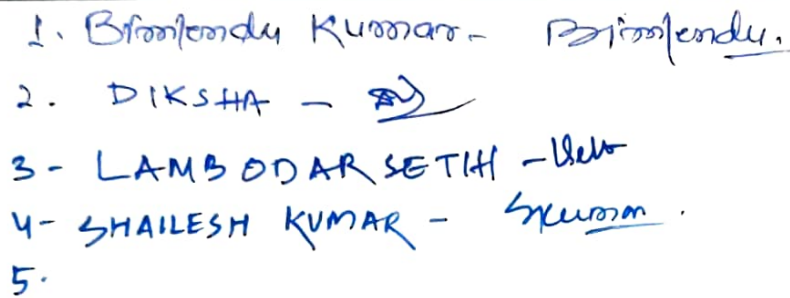 1. Bimlendu Kumar - Bimlendu.
2. DIKSHA -
3 - LAMBODAR SETHI -
4 - SHAILESH KUMAR - Skumar.
5.